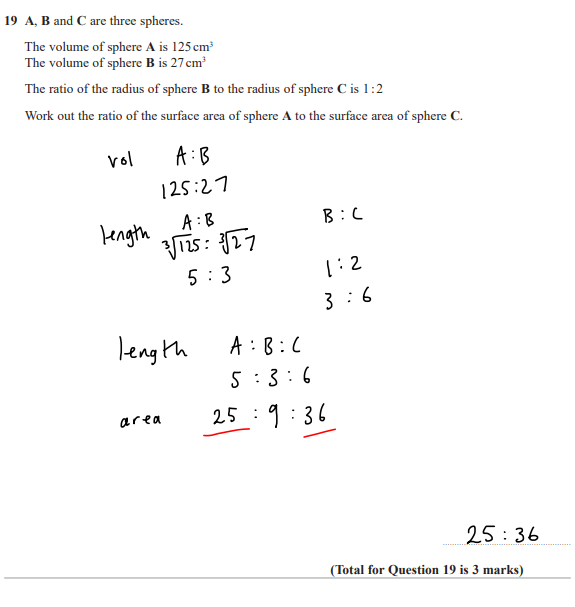 19 A, B and C are three spheres.
The volume of sphere A is 125 cm³
The volume of sphere B is 27 cm³
The ratio of the radius of sphere B to the radius of sphere C is 1:2
Work out the ratio of the surface area of sphere A to the surface area of sphere C.
vol A:B
125:27
length A:B
∛125 : ∛27
5 : 3
B:C
1:2
3 : 6
length A : B : C
5 : 3 : 6
area 25 : 9 : 36
25 : 36
(Total for Question 19 is 3 marks)